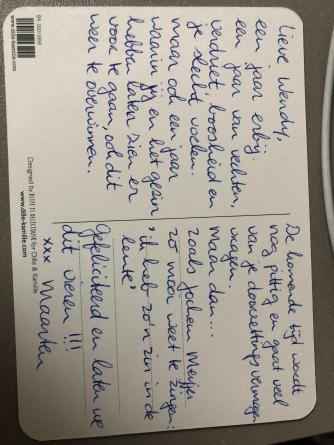 Lieve Wendy,
een jaar erbij.
een jaar van vechten,
verdriet, boosheid en
je slecht voelen.
maar ook een jaar
waarin jij en het gezin
hebben laten zien er
voor te gaan, ook dit
weer te overwinnen.
De komende tijd wordt
nog pittig en gaat veel
van je doorzettingsvermogen
vragen.
Maar dan...
zoals Jochem Meijer
zo mooi weet te zingen:
'ik heb zo'n zin in de
lente'
Gefeliciteerd en laten we
dit vieren !!!
xxx Maarten
Designed by DILLE EN DELICIEUSE for Dille & Kamille
www.dille-kamille.com
www.dille-kamille.com